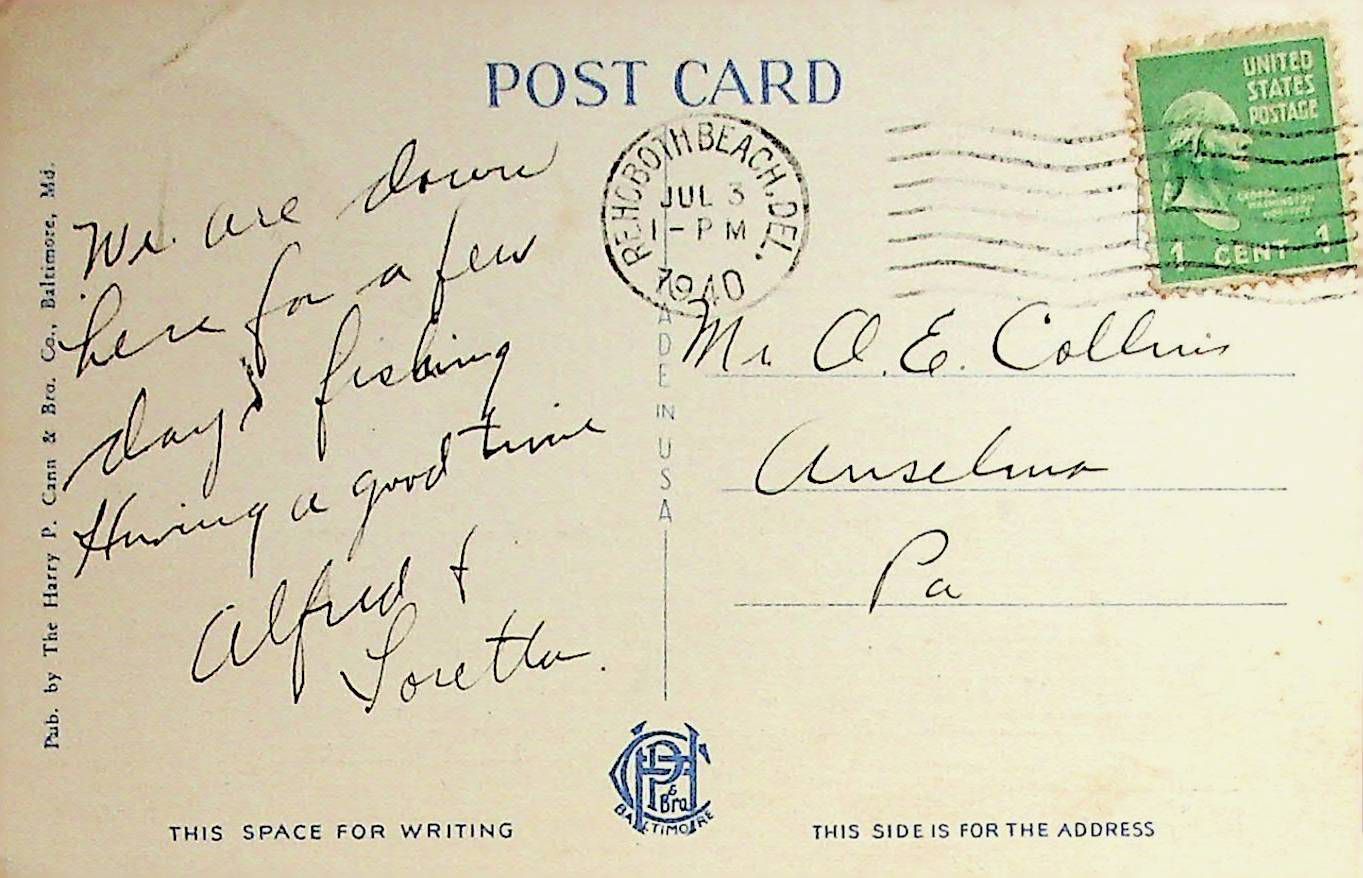 POST CARD
UNITED
STATES
POSTAGE
GEORGE
WASHINGTON
1 CENT 1
REHOBOTH BEACH, DEL.
JUL 3
1 - P M
1940
We are down
here for a few
day's fishing
Having a good time
Alfred &
Loretta.
Mr O. E. Collins
Anselma
Pa
MADE IN USA
Pub. by The Harry P. Cann & Bro. Co., Baltimore, Md.
HPC
& Bro
BALTIMORE
THIS SPACE FOR WRITING
THIS SIDE IS FOR THE ADDRESS